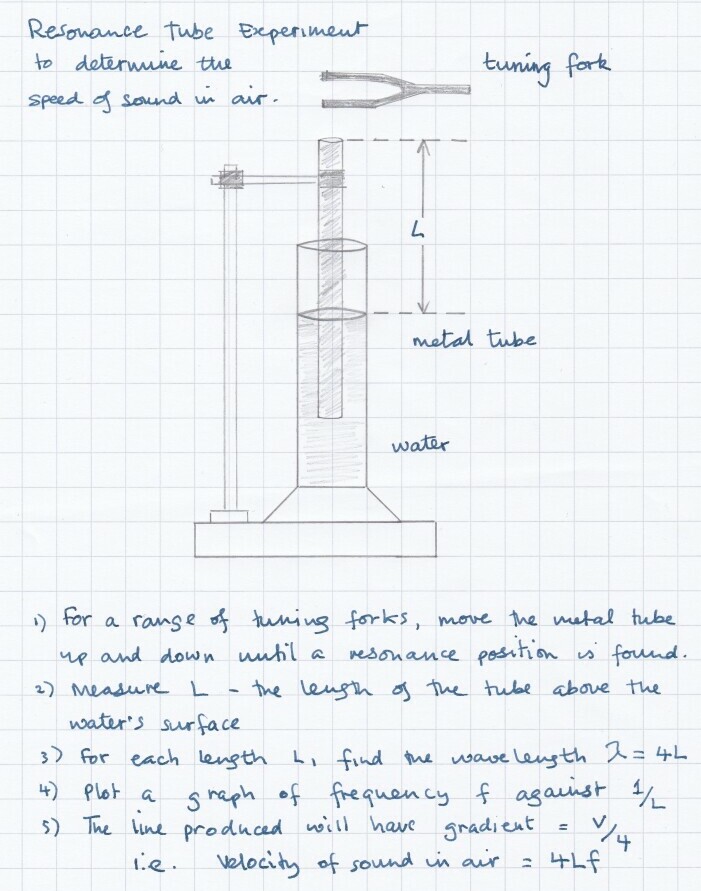 Resonance Tube Experiment
to determine the
speed of sound in air.
tuning fork
L
metal tube
water
1) For a range of tuning forks, move the metal tube
up and down until a resonance position is found.
2) Measure L - the length of the tube above the
water's surface
3) For each length L, find the wavelength λ = 4L
4) Plot a graph of frequency f against 1/L
5) The line produced will have gradient = v/4
i.e. Velocity of sound in air = 4Lf